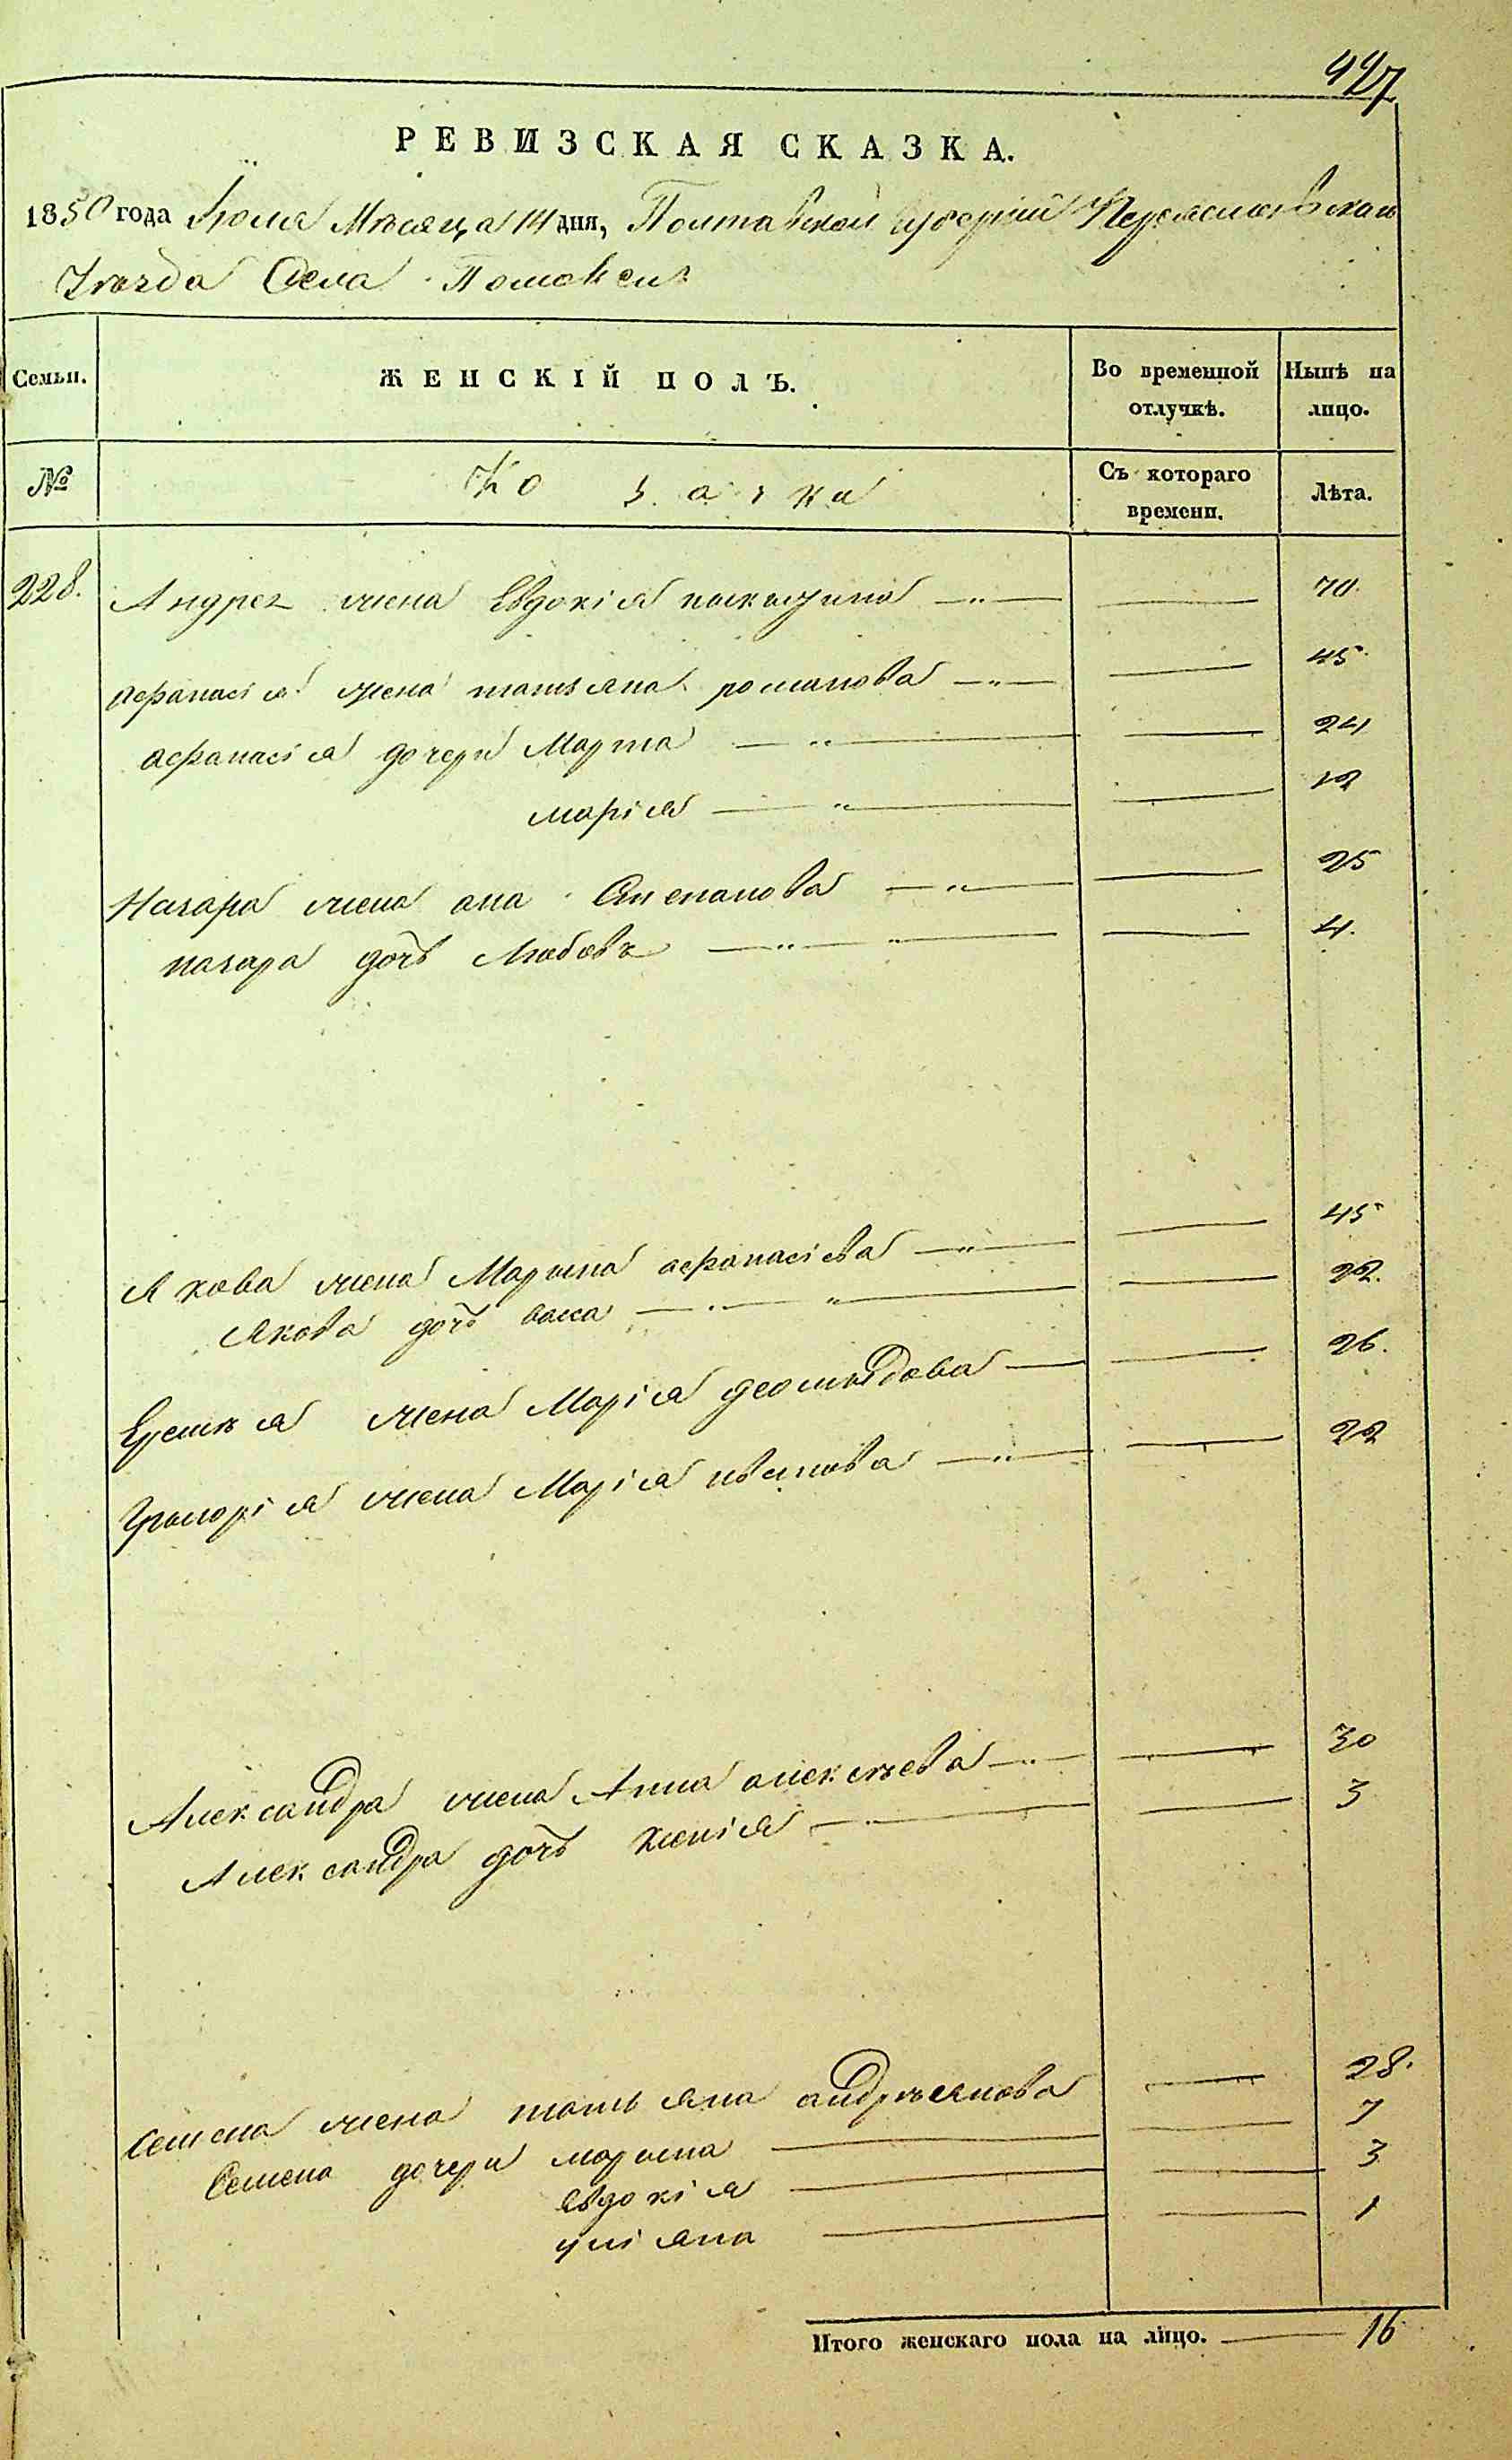 427
РЕВИЗСКАЯ СКАЗКА.
1850 года Іюля Мѣсяца 14 дня, Полтавской Губерніи Переяславскаго
Уѣзда Села Помоклей
Семьи. ЖЕНСКІЙ ПОЛЪ. Во временной отлучкѣ. Нынѣ на лицо.
№ Козачка Съ котораго времени. Лѣта.
228. Андрея жена Евдокія 70.
Афанасія жена татьяна романова 45.
афанасія дочери Марта 24
марія 12
Назара жена ана Степанова 25
назара дочь Любовь 4.
Якова жена Марина афанасіева 45
Якова дочь васа 22.
Еремѣя жена Марія деомидова 26.
Григорія жена Марія иванова 22
Александра жена Анна алексѣева 30
Александра дочь ксенія 3
Семена жена татьяна андреянова 28.
Семена дочери марина 7
евдокія 3
уліяна 1
Итого женскаго пола на лицо. 16